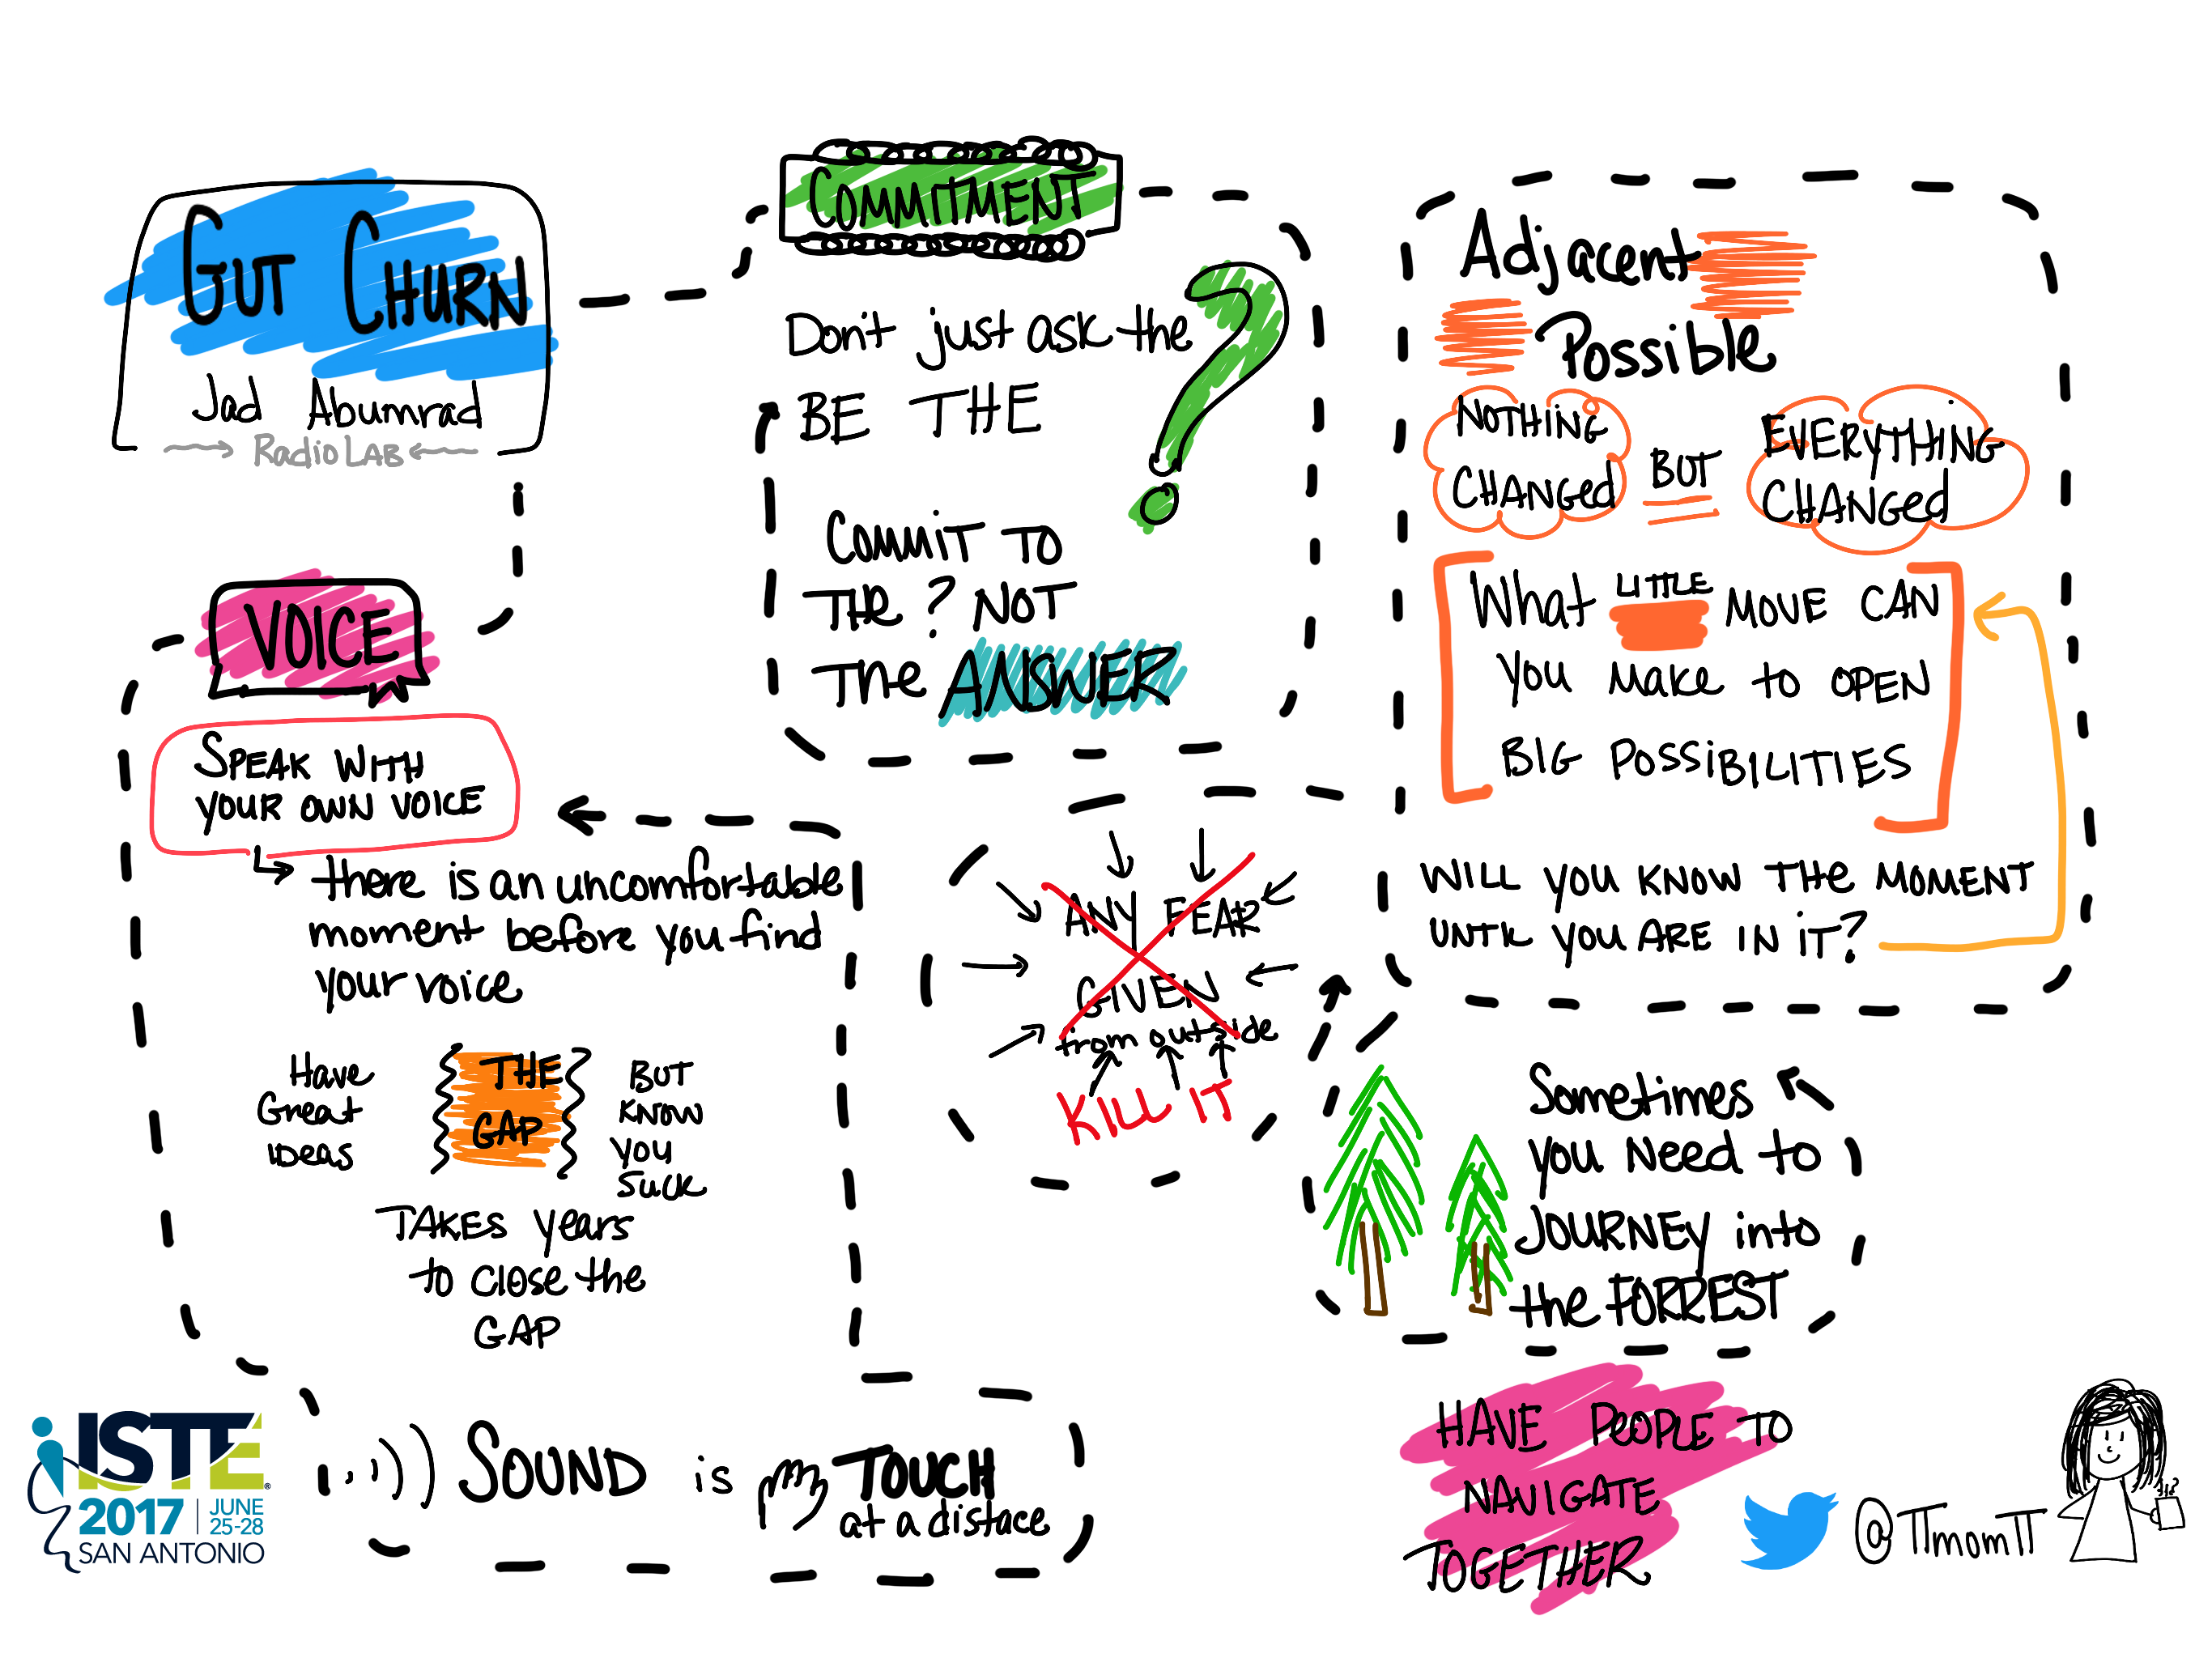 GUT CHURN
Jad Abumrad
RadioLAB
COMMITMENT
Don't just ask the
BE THE
?
COMMIT TO
THE ? NOT
THE ANSWER
Adjacent
Possible
NOTHING
CHANGED
BUT
EVERYTHING
CHANGED
What LITTLE MOVE CAN
YOU MAKE TO OPEN
BIG POSSIBILITIES
WILL YOU KNOW THE MOMENT
UNTIL YOU ARE IN IT?
VOICE
SPEAK WITH
YOUR OWN VOICE
there is an uncomfortable
moment before you find
your voice
Have
Great
IDEAS
THE
GAP
BUT
KNOW
YOU
SUCK
TAKES years
to close the
GAP
ANY FEAR
GIVEN
from outside
KILL IT
Sometimes
you Need to
JOURNEY into
the FORREST
SOUND is TOUCH
at a distace
HAVE PEOPLE TO
NAVIGATE
TOGETHER
@TTmomTT
ISTE®
2017 | JUNE
25-28
SAN ANTONIO